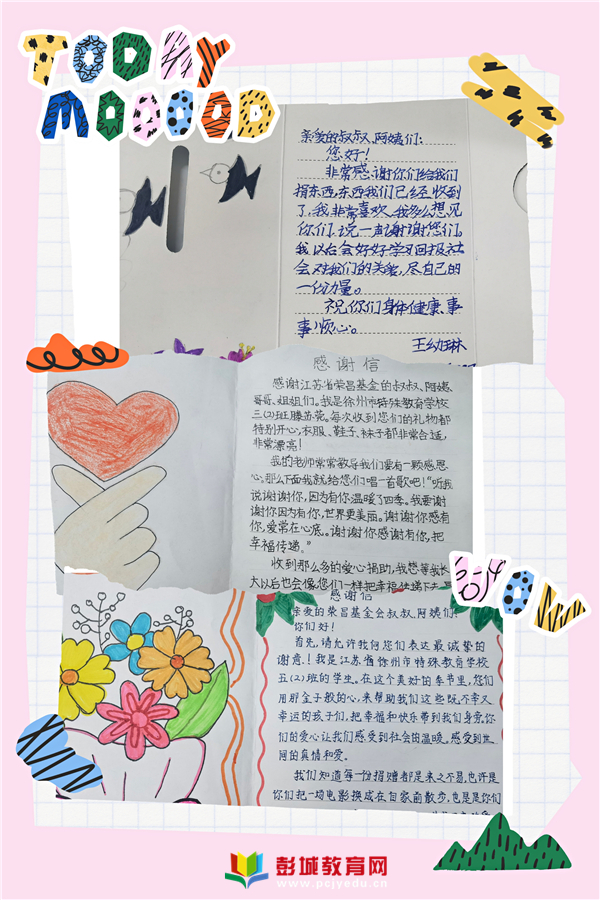 TODAY
MOOOOD
亲爱的叔叔、阿姨们:
您好!
非常感谢你们给我们
捐东西,东西我们已经收到
了,我非常喜欢,我多么想见
你们,说一声谢谢您们。
我以后会好好学习回报社
会对我们的关爱,尽自己的
一份力量。
祝你们身体健康、事
事顺心。
感谢信
感谢江苏省荣昌基金的叔叔、阿姨、
哥哥、姐姐们。我是徐州市特殊教育学校
三(2)班滕苏荣。每次收到您们的礼物都
特别开心,衣服、鞋子、袜子都非常合适,
非常漂亮!
我的老师常常教导我们要有一颗感恩
心,那么下面我就给您们唱一首歌吧!“听我
说谢谢你,因为有你,温暖了四季。我要谢
谢你因为有你,世界更美丽。谢谢你感有
你,爱常在心底。谢谢你感谢有你,把
幸福传递。”
收到那么多的爱心捐助,我想等我长
大以后也会像您们一样把幸福传递下去
WOW
感谢信
亲爱的荣昌基金会叔叔、阿姨们:
你们好!
首先,请允许我向您们表达最诚挚的
谢意!我是江苏省徐州市特殊教育学校
五(2)班的学生。在这个美好的季节里,您们
用那金子般的心,来帮助我们这些既不幸又
幸运的孩子们,把幸福和快乐带到我们身旁,你
们的爱心让我们感受到社会的温暖,感受到世
间的真情和爱。
我们知道每一份捐赠都是来之不易,也许是
你们把一场电影换成在自家前散步,也是是你们
彭城教育网
www.pcjyedu.cn